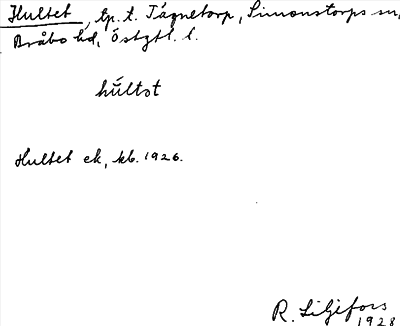 Hultet, tp. t. Tågnetorp, Simonstorps sn,
Bråbo hd, Östgtl. l.
húltst
Hultet ek, kb. 1926.
R. Liljefors
1928